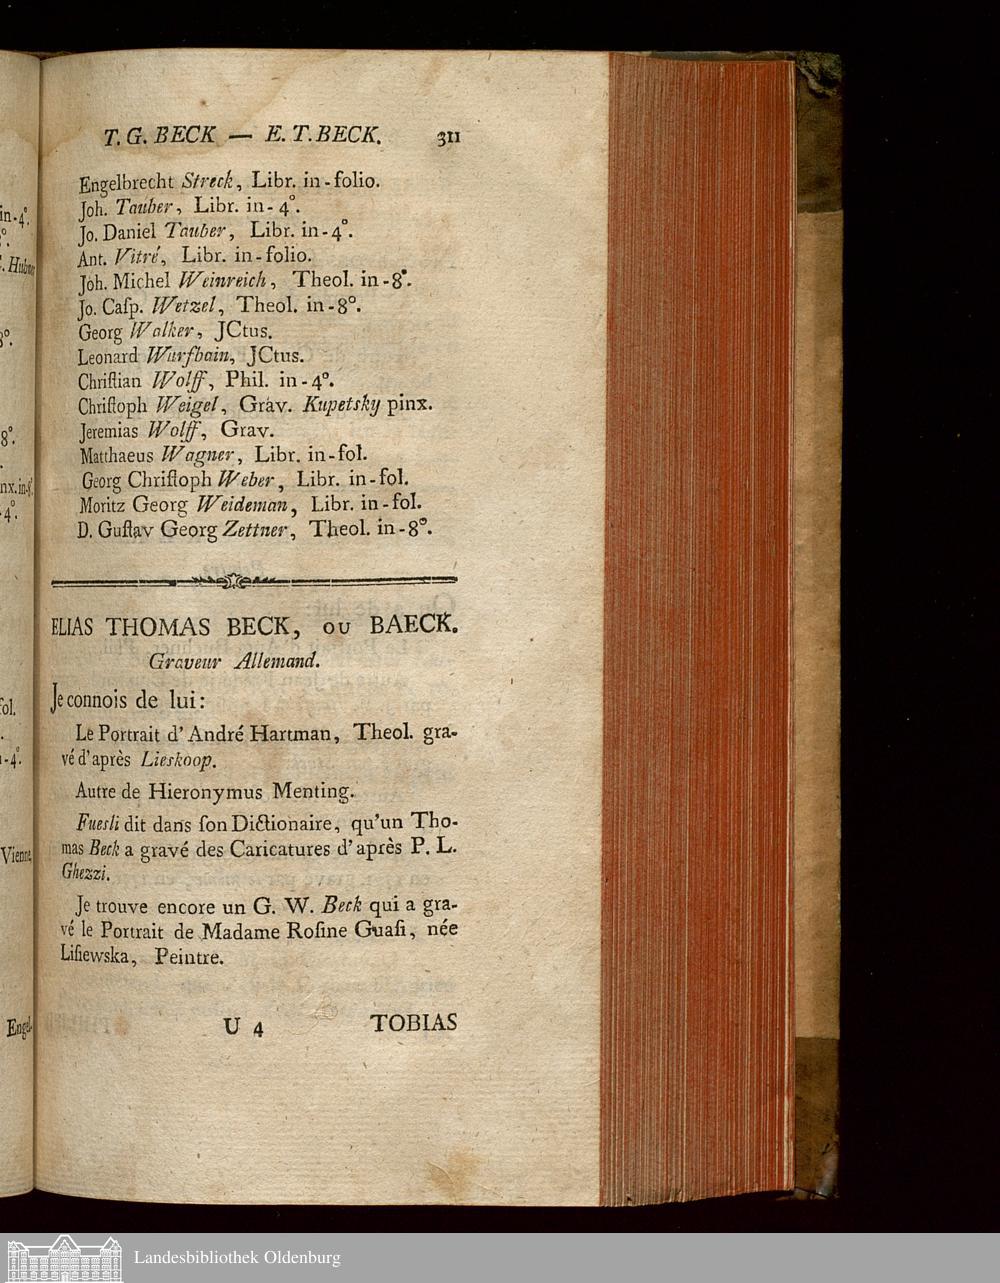 T. G. BECK — E. T. BECK. 311
Engelbrecht Streck, Libr. in-folio.
Joh. Tauber, Libr. in-4°.
Jo. Daniel Tauber, Libr. in-4°.
Ant. Vitré, Libr. in-folio.
Joh. Michel Weinreich, Theol. in-8°.
Jo. Caſp. Wetzel, Theol. in-8°.
Georg Walker, JCtus.
Leonard Wurfbain, JCtus.
Chriſtian Wolff, Phil. in-4°.
Chriſtoph Weigel, Grav. Kupetsky pinx.
Jeremias Wolff, Grav.
Matthaeus Wagner, Libr. in-fol.
Georg Chriſtoph Weber, Libr. in-fol.
Moritz Georg Weideman, Libr. in-fol.
D. Guſtav Georg Zettner, Theol. in-8°.
ELIAS THOMAS BECK, OU BAECK.
Graveur Allemand.
Je connois de lui:
Le Portrait d'André Hartman, Theol. gra-
vé d'après Lieskoop.
Autre de Hieronymus Menting.
Fuesli dit dans ſon Dictionaire, qu'un Tho-
mas Beck a gravé des Caricatures d'après P. L.
Ghezzi.
Je trouve encore un G. W. Beck qui a gra-
vé le Portrait de Madame Roſine Guaſi, née
Liſiewska, Peintre.
U 4 TOBIAS
in-4°.
8°.
fol.
-4°.
Vienne,
Engel-
Landesbibliothek Oldenburg